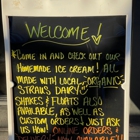 WELCOME
COME IN AND CHECK OUT OUR
HOMEMADE ICE CREAM! ALL
MADE WITH LOCAL ORGANIC
STRAUS DAIRY!
SHAKES & FLOATS ALSO
AVAILABLE, AS WELL AS
CUSTOM ORDERS! JUST ASK
US HOW! ONLINE ORDERS